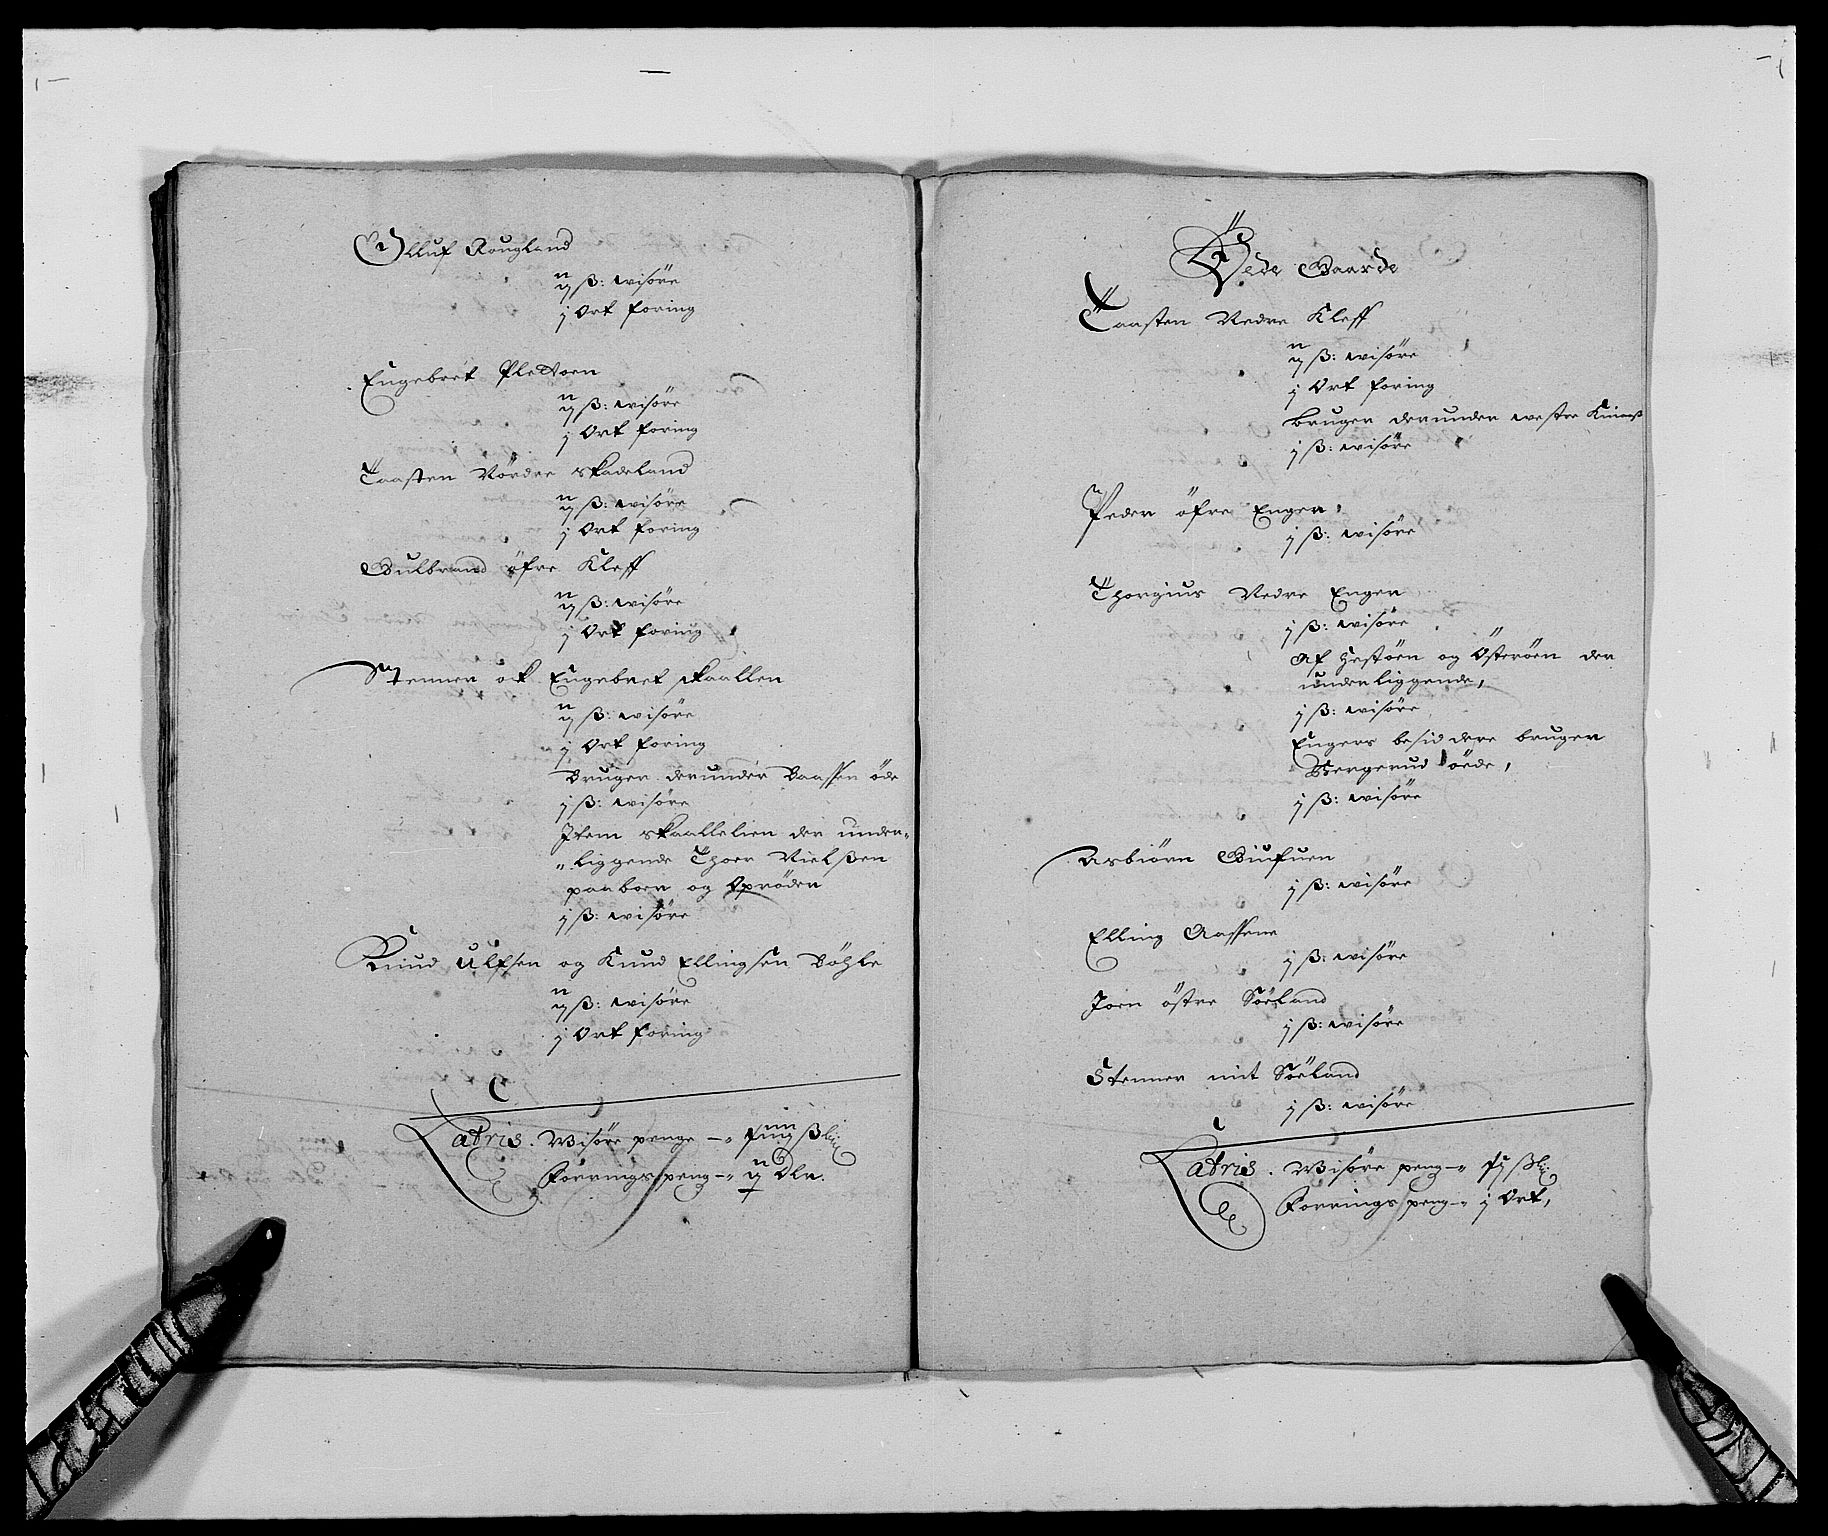 Olluf Rougland
ij ß: wisöre
j Ort foring
Engebret Plettoen
ij ß: wisöre
j Ort foring
Taasten Nördre Skadeland
ij ß: wisöre
j Ort foring
Gulbrand öfre Kleff
ij ß: wisöre
j Ort foring
Stenner ok Engebret Skaallen
ij ß: wisöre
j Ort foring
Bruger derunder Baassen öde
j ß: wisöre
Item Skaallelien der under-
liggende Thoer Nielßen
paaboer og Oprödder
j ß: wisöre
Knud Ulfsen og Knud Ellingsen Böhle
ij ß: wisöre
j Ort foring
Latris. Wisöre penge -
Foerings peng - Dlr.
Öede Gaarde
Taasten Nedre Kleff
ij ß: wisöre
j Ort foring
Bruger derunder westre
j ß: wisöre
Peder öfre Enger,
j ß: wisöre
Thorgius Nedre Enger
j ß: wisöre
Af Hestöen og Österöen der
underliggende,
j ß: wisöre
Engers besiddere bruger
Bergerud öede,
j ß: wisöre
Asbiörn
j ß: wisöre
Elling Aassene
j ß: wisöre
Joen östre Söeland
j ß: wisöre
Stenner mit Söeland
j ß: wisöre
Latris. Wisöre peng -
Forrings peng - j Ort,